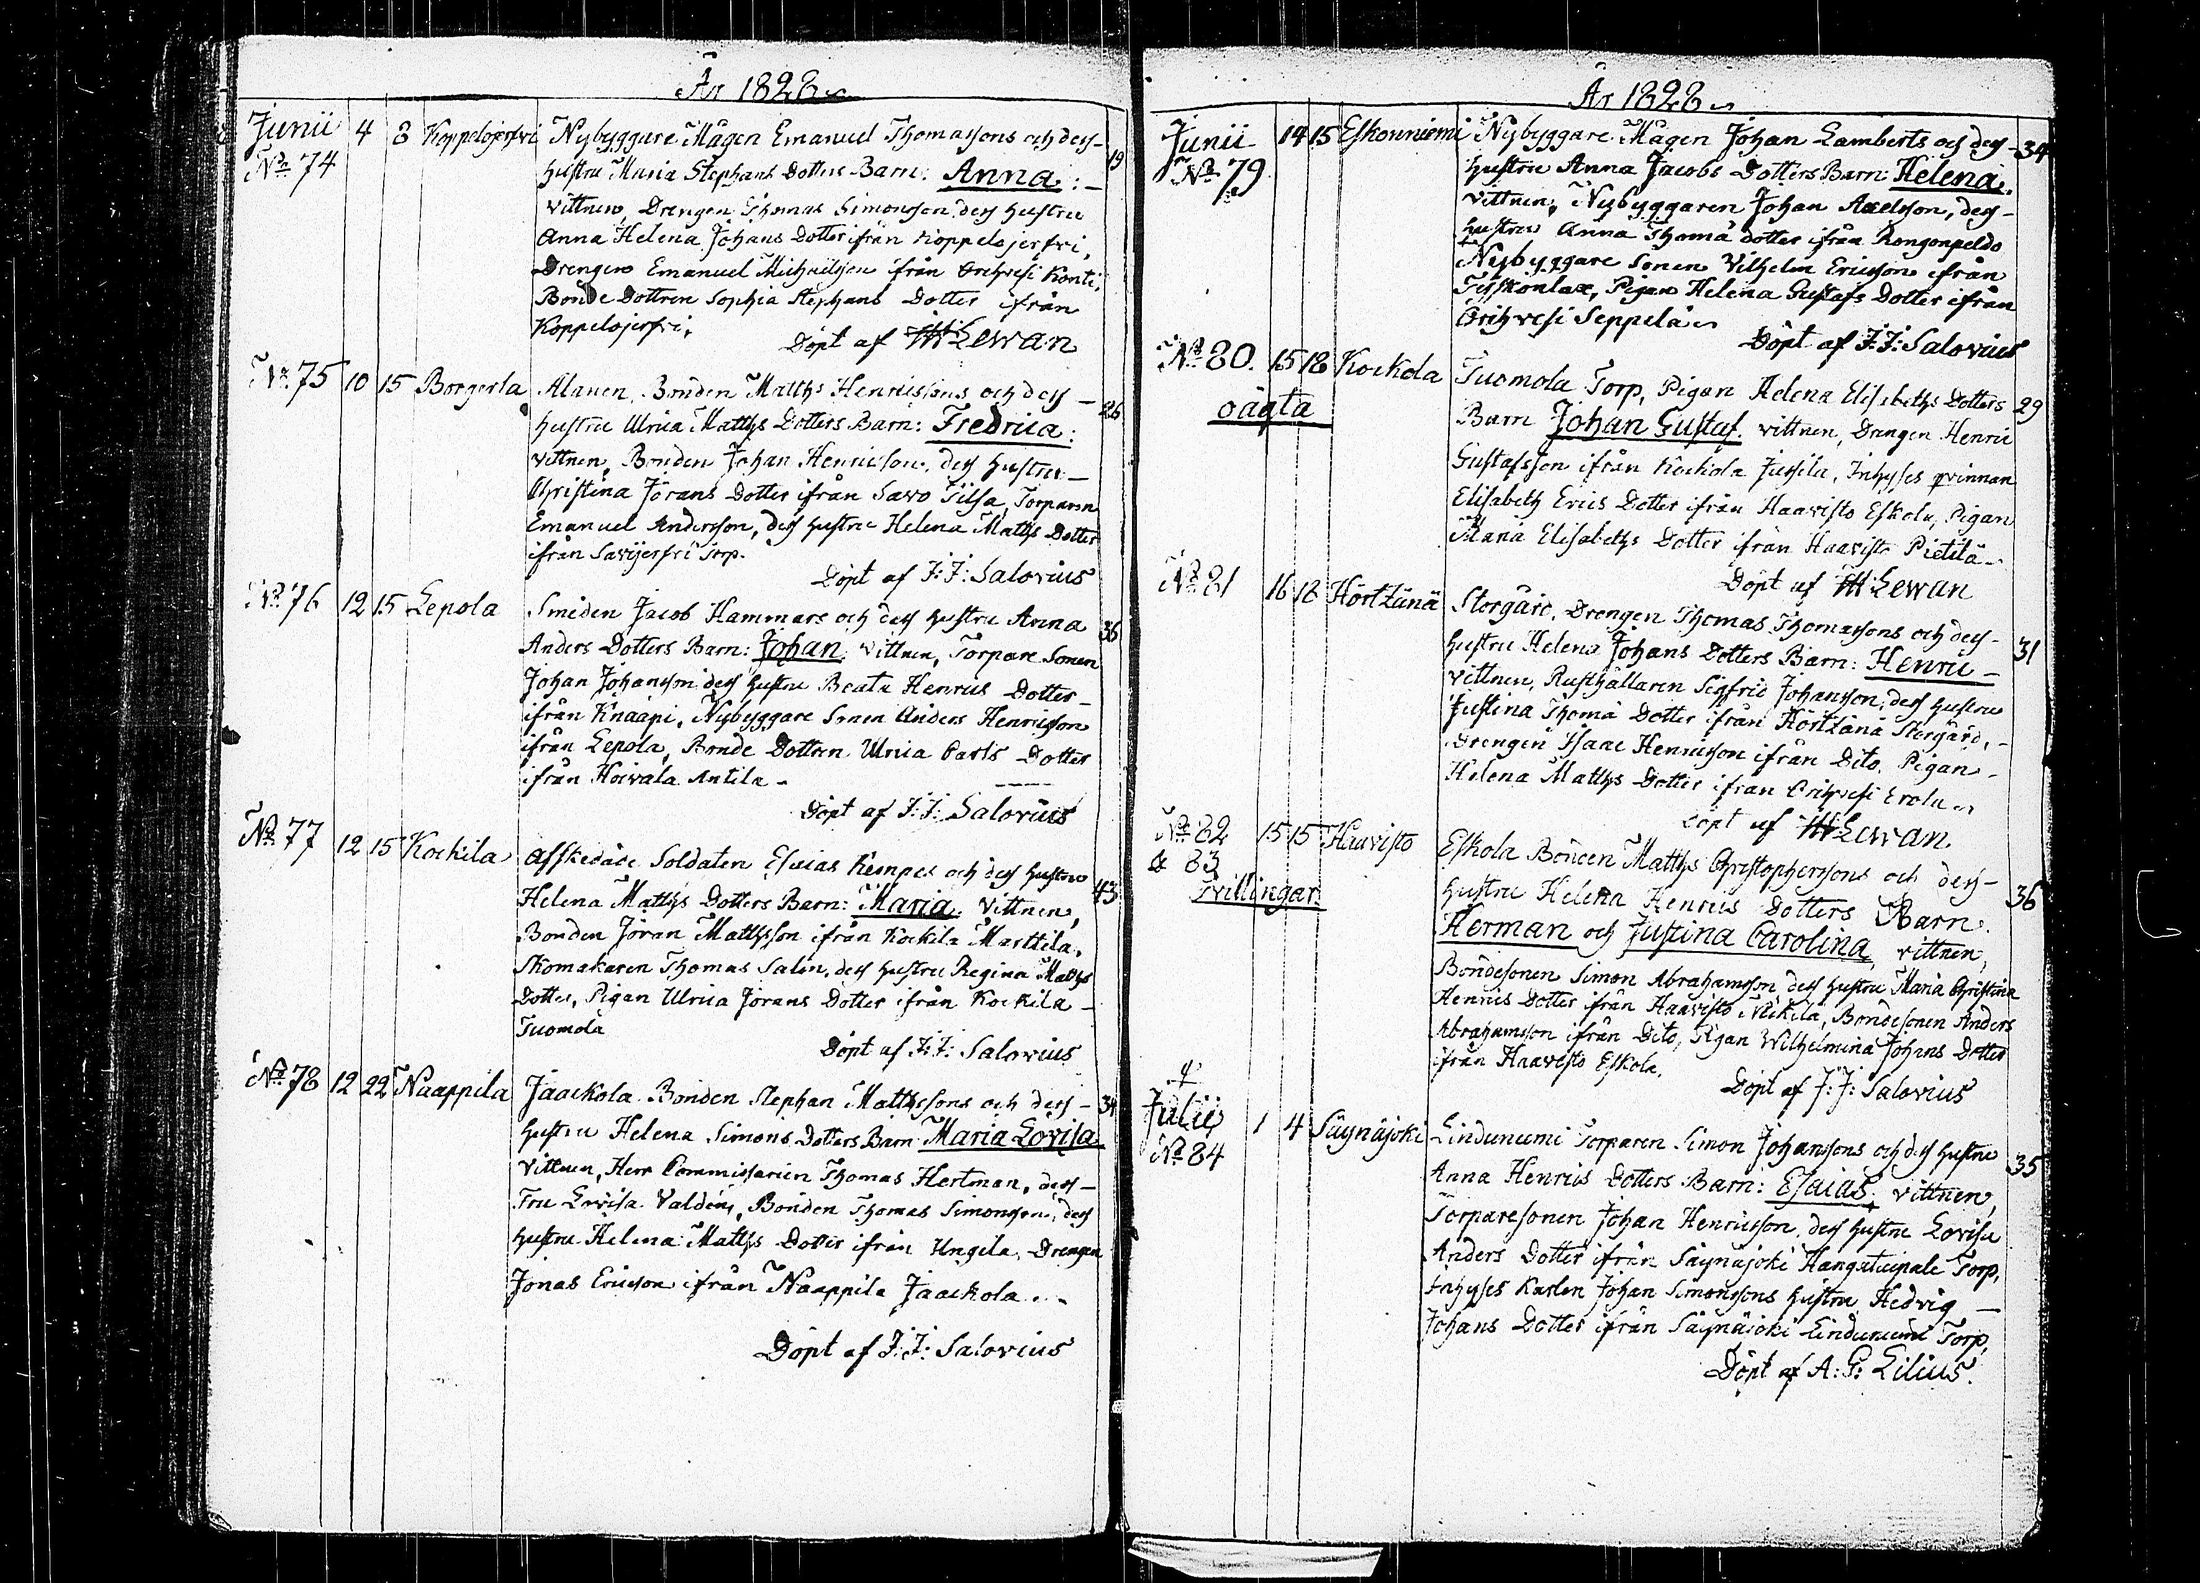 År 1828
Junii 4 8 Koppelojerfvi Nybyggare Mågen Emanuel Thomassons och dess
No 74 hustru Maria Stephans Dotters Barn: Anna: 19
vittnen, Drengen Thomas Simonsson dess hustru
Anna Helena Johans Dotter ifrån Koppelojerfvi,
Drengen Emanuel Michailsson ifrån Orihvesi Konti,
Bonde Dottren Sophia Stephans Dotter ifrån
Koppelojerfvi,
Döpt af Lewan
No 75 10 15 Borgerla Alanen, Bonden Matths Henrissons och dess 26
hustru Ulrica Matths Dotters Barn: Fredrica:
vittnen, Bonden Johan Henricson, dess hustru
Christina Jörans Dotter ifrån Savo Jilsa, Torparen
Emanuel Andersson, dess hustru Helena Matths Dotter
ifrån Savijerfvi Torp.
Döpt af J: J: Salovius
No 76 12 15 Lepola Smeden Jacob Hammars och dess hustru Anna 36
Anders Dotters Barn: Johan. vittnen, Torpare Sonen
Johan Johansson dess hustru Beata Henrics Dotter
ifrån Knaapi, Nybyggare Sonen Anders Henricsson
ifrån Lepola, Bonde Dottren Ulrica Carls Dotter
ifrån Hoivala Antila
Döpt af J: J: Salovius
No 77 12 15 Kockila Affskedade Soldaten Esaias Kempes och dess hustru
Helena Matths Dotters Barn: Maria. Vittnen, 43
Bonden Jöran Mattsson ifrån Kockila Marttila,
Skomakaren Thomas Salen, dess hustru Regina Matths
Dotter, Pigan Ulrica Jörans Dotter ifrån Kockila
Tuomola
Döpt af J: J: Salovius
No 78 12 22 Naappila Jaackola Bonden Stephan Matthssons och dess 34
hustru Helena Simons Dotters Barn Maria Lovisa
Vittnen, Herr Commissarien Thomas Hertman, dess
Fru Lovisa Valden, Bonden Thomas Simonsson, dess
hustru Helena Matths Dotter ifrån Ungila, Drengen
Jonas Ericson ifrån Naappila Jaackola
Döpt af J: J: Salovius
År 1828
Junii 14 15 Eskonniemi Nybyggare Mågen Johan Lamberts och dess 34
No 79 hustru Anna Jacobs Dotters Barn: Helena.
vittnen, Nybyggaren Johan Axelsson, dess
hustru Anna Thomä dotter ifrån Rongonpeldo
Nybyggare Sonen Vilhelm Ericsson ifrån
Pigan Helena Gustafs Dotter ifrån
Orihvesi Seppelä
Döpt af J: J: Salovius
No 80. 15 18 Kockola Tuomola Torp, Pigan Helena Elisabeths Dotters 29
oägta Barn Johan Gustaf. vittnen, Drengen Henric
Gustafsson ifrån Kockola Jussila, Inhyses qvinnan
Elisabeth Erics Dotter ifrån Haavisto Eskola, Pigan
Maria Elisabeths Dotter ifrån Haavisto Pietilä
Döpt af Lewan
No 81 16 18 Hörtzänä Storgård, Drengen Thomas Thomassons och dess
hustru Helena Johans Dotters Barn: Henric 31
vittnen, Rusthållaren Sigfrid Johansson, dess hustru
Justina Thomä Dotter ifrån Hörtzänä Storgård,
Drengen Isaac Henricsson ifrån Dito, Pigan
Helena Matths Dotter ifrån Orihvesi Erola
Döpt af Lewan
No 82 15 15 Haavisto Eskola Bonden Matths Christophersons och dess
& 83 hustru Helena Henrics Dotters Barn. 36
Tvillingar Herman och Justina Carolina, vittnen,
Bondesonen Simon Abrahamsson dess hustru Maria Christina
Henrics Dotter ifrån Haavisto Mickilä, Bondesonen Anders
Abrahamsson ifrån Dito, Pigan Wilhelmina Johans Dotter
ifrån Haavisto Eskola.
Döpt af J: J: Salovius
Julii 1 4 Säynäjoki Lindunumi Torparen Simon Johanssons och dess hustru
No 84 Anna Henrics Dotters Barn: Esaias. vittnen, 35
Torparesonen Johan Henricsson, dess hustru Lovisa
Anders Dotter ifrån Säynäjoki Torp,
Inhyses Karlen Johan Simonssons hustru Hedvig
Johans Dotter ifrån Säynäjoki Lindunumi Torp,
Döpt af A: G: Lilius.